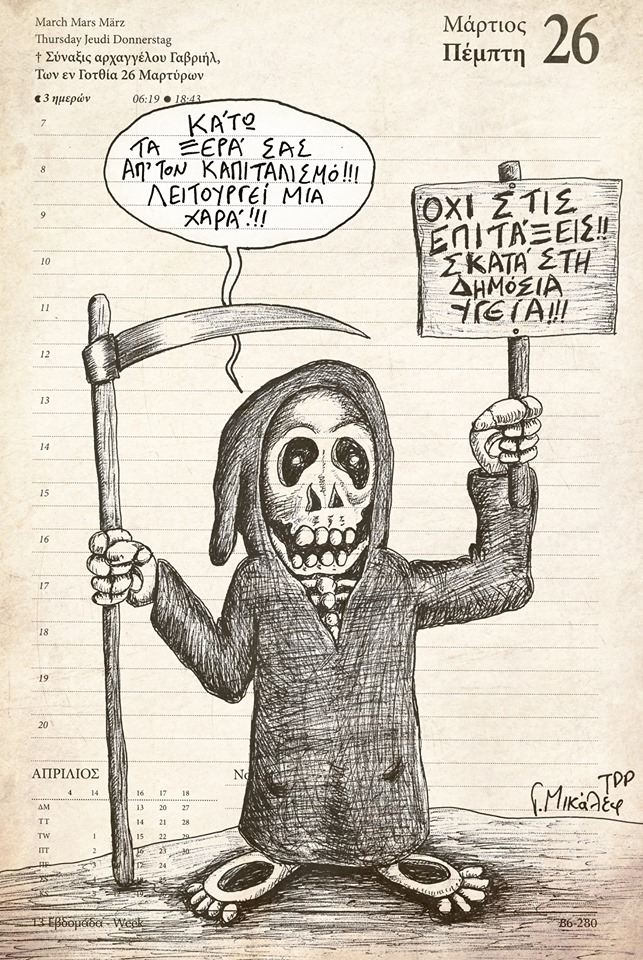 March Mars März
Thursday Jeudi Donnerstag
† Σύναξις αρχαγγέλου Γαβριήλ,
Των εν Γοτθία 26 Μαρτύρων
3 ημερών 06:19 ● 18:43
Μάρτιος
Πέμπτη 26
ΚΆΤΩ
ΤΑ ΞΕΡΆ ΣΑΣ
ΑΠ' ΤΟΝ ΚΑΠΙΤΑΛΙΣΜΌ!!!
ΛΕΙΤΟΥΡΓΕΊ ΜΙΑ
ΧΑΡΆ!!!
ΌΧΙ ΣΤΙΣ
ΕΠΙΤΆΞΕΙΣ!!
ΣΚΑΤΆ ΣΤΗ
ΔΗΜΌΣΙΑ
ΥΓΕΊΑ!!!
7
8
9
10
11
12
13
14
15
16
17
18
19
20
ΑΠΡΙΛΙΟΣ
4 14 16 17 18
ΔΜ 13 20 27
ΤΤ 14 21 28
TW 1 15 22 29
ΠΤ 2 16 23 30
ΠF 3 24
No
TDP
Γ. Μικάλεφ
13 Εβδομάδα - Week
86-280